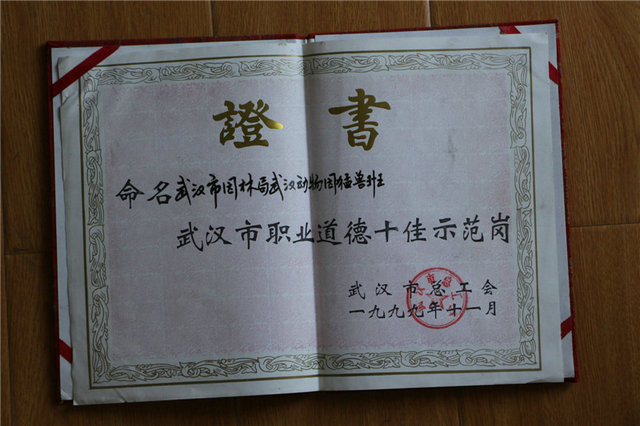 證書
命名武汉市园林局武汉动物园猛兽班
武汉市职业道德十佳示范岗
武汉市总工会
一九九九年十一月